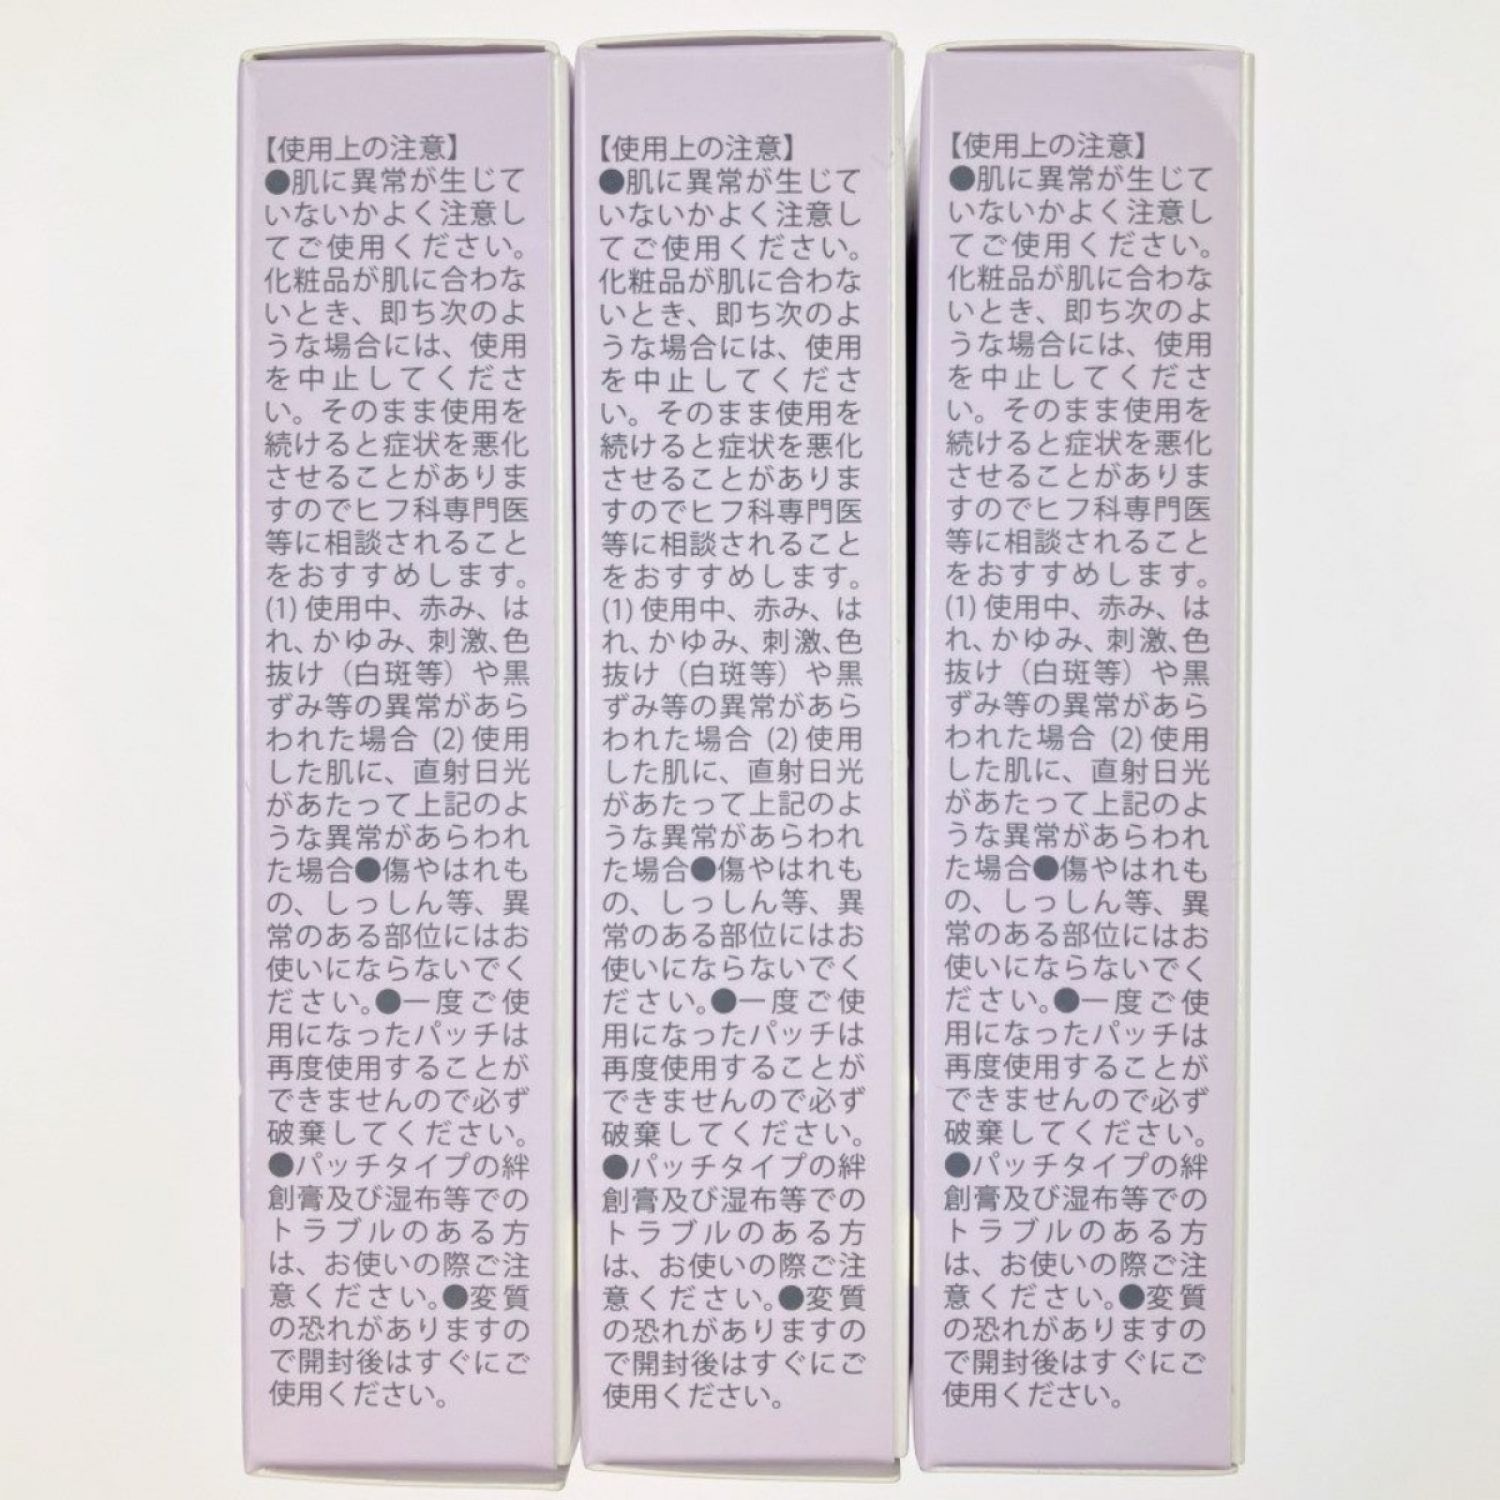 【使用上の注意】
●肌に異常が生じて
いないかよく注意し
てご使用ください。
化粧品が肌に合わな
いとき、即ち次のよ
うな場合には、使用
を中止してくださ
い。そのまま使用を
続けると症状を悪化
させることがありま
すのでヒフ科専門医
等に相談されること
をおすすめします。
(1) 使用中、赤み、は
れ、かゆみ、刺激、色
抜け（白斑等）や黒
ずみ等の異常があら
われた場合 (2) 使用
した肌に、直射日光
があたって上記のよ
うな異常があらわれ
た場合●傷やはれも
の、しっしん等、異
常のある部位にはお
使いにならないでく
ださい。●一度ご使
用になったパッチは
再度使用することが
できませんので必ず
破棄してください。
●パッチタイプの絆
創膏及び湿布等での
トラブルのある方
は、お使いの際ご注
意ください。●変質
の恐れがありますの
で開封後はすぐにご
使用ください。
【使用上の注意】
●肌に異常が生じて
いないかよく注意し
てご使用ください。
化粧品が肌に合わな
いとき、即ち次のよ
うな場合には、使用
を中止してくださ
い。そのまま使用を
続けると症状を悪化
させることがありま
すのでヒフ科専門医
等に相談されること
をおすすめします。
(1) 使用中、赤み、は
れ、かゆみ、刺激、色
抜け（白斑等）や黒
ずみ等の異常があら
われた場合 (2) 使用
した肌に、直射日光
があたって上記のよ
うな異常があらわれ
た場合●傷やはれも
の、しっしん等、異
常のある部位にはお
使いにならないでく
ださい。●一度ご使
用になったパッチは
再度使用することが
できませんので必ず
破棄してください。
●パッチタイプの絆
創膏及び湿布等での
トラブルのある方
は、お使いの際ご注
意ください。●変質
の恐れがありますの
で開封後はすぐにご
使用ください。
【使用上の注意】
●肌に異常が生じて
いないかよく注意し
てご使用ください。
化粧品が肌に合わな
いとき、即ち次のよ
うな場合には、使用
を中止してくださ
い。そのまま使用を
続けると症状を悪化
させることがありま
すのでヒフ科専門医
等に相談されること
をおすすめします。
(1) 使用中、赤み、は
れ、かゆみ、刺激、色
抜け（白斑等）や黒
ずみ等の異常があら
われた場合 (2) 使用
した肌に、直射日光
があたって上記のよ
うな異常があらわれ
た場合●傷やはれも
の、しっしん等、異
常のある部位にはお
使いにならないでく
ださい。●一度ご使
用になったパッチは
再度使用することが
できませんので必ず
破棄してください。
●パッチタイプの絆
創膏及び湿布等での
トラブルのある方
は、お使いの際ご注
意ください。●変質
の恐れがありますの
で開封後はすぐにご
使用ください。